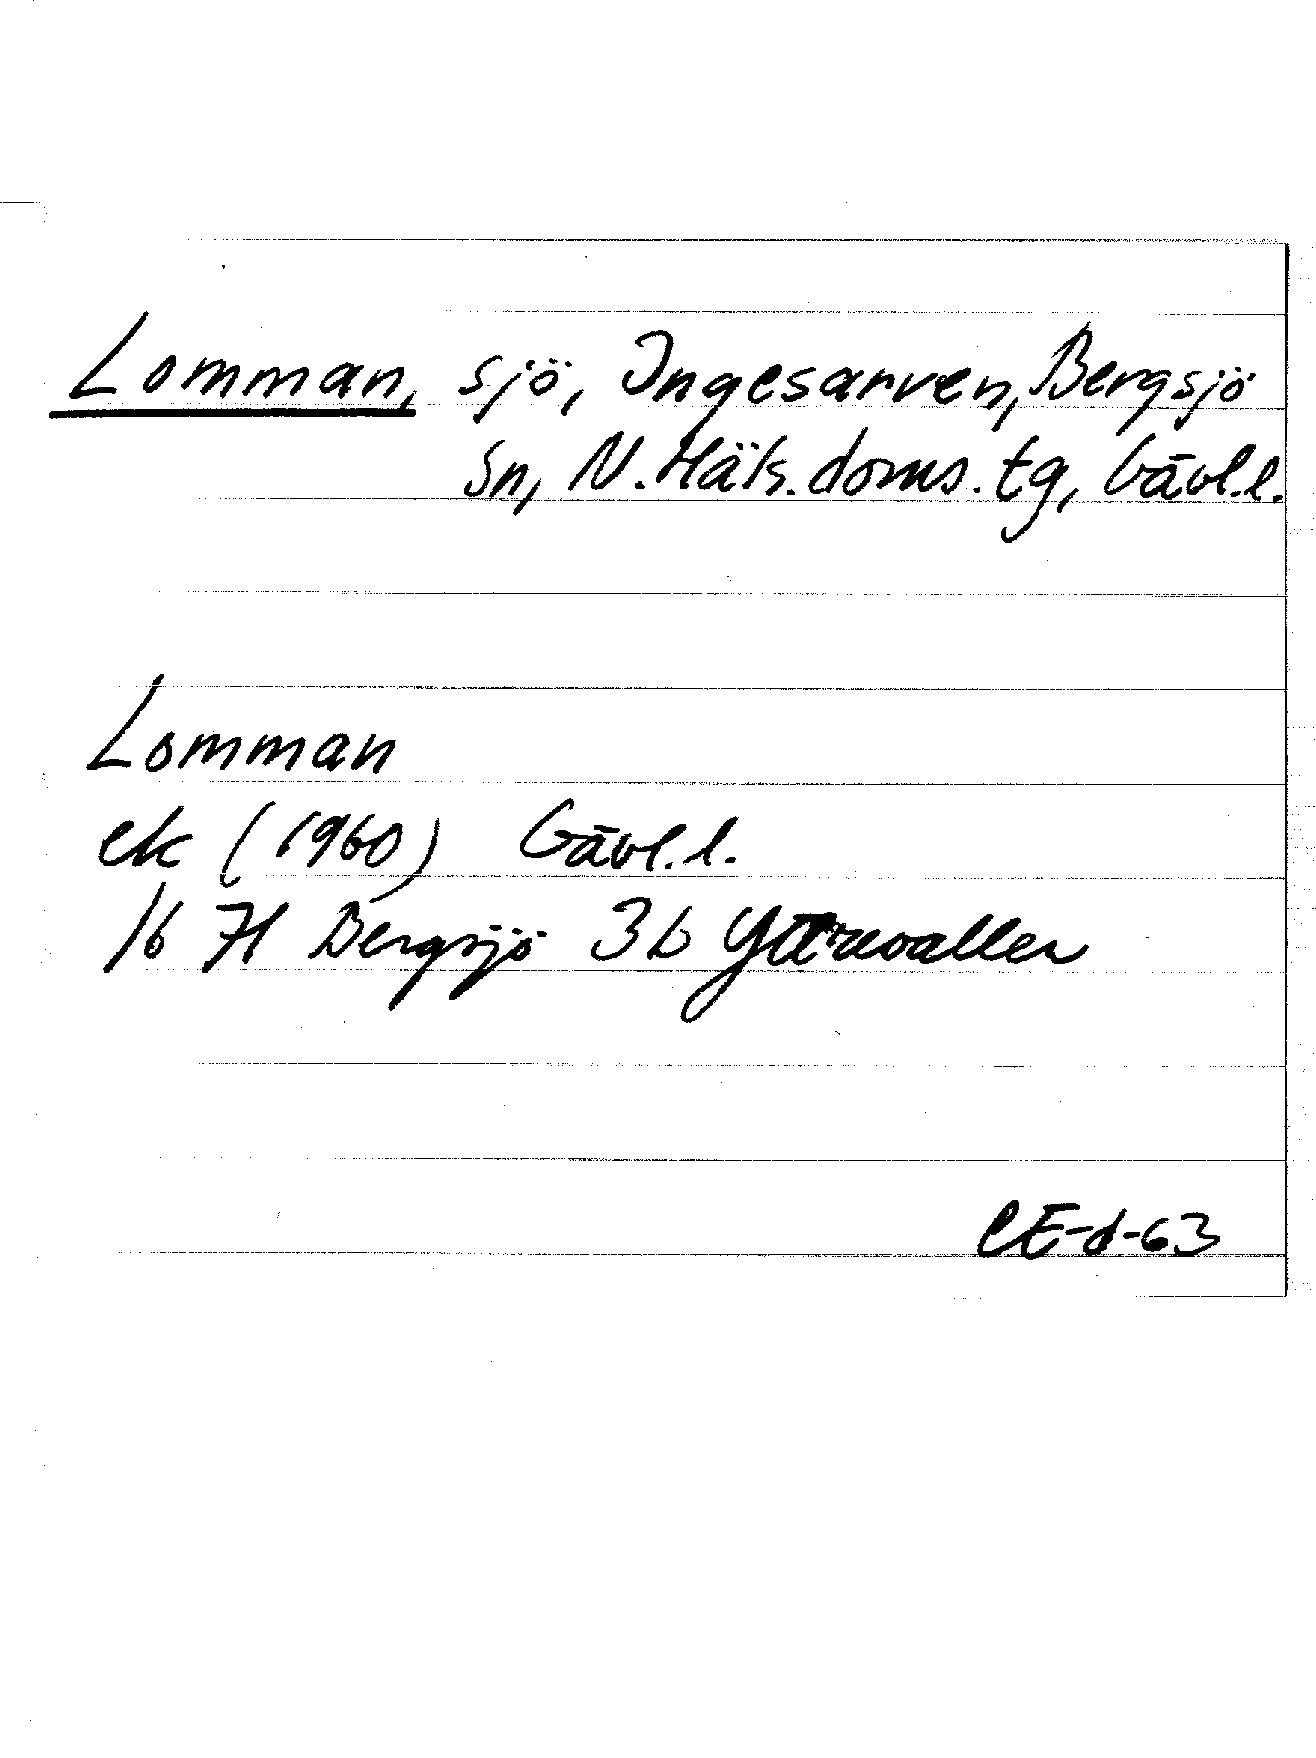 Lomman, sjö, Ingesarven, Bergsjö
sn, N. Häls. doms. tg, Gävl. l.
Lomman
ek (1960) Gävl. l.
16 H Bergsjö 3b Yttrevallen
CE-d-63